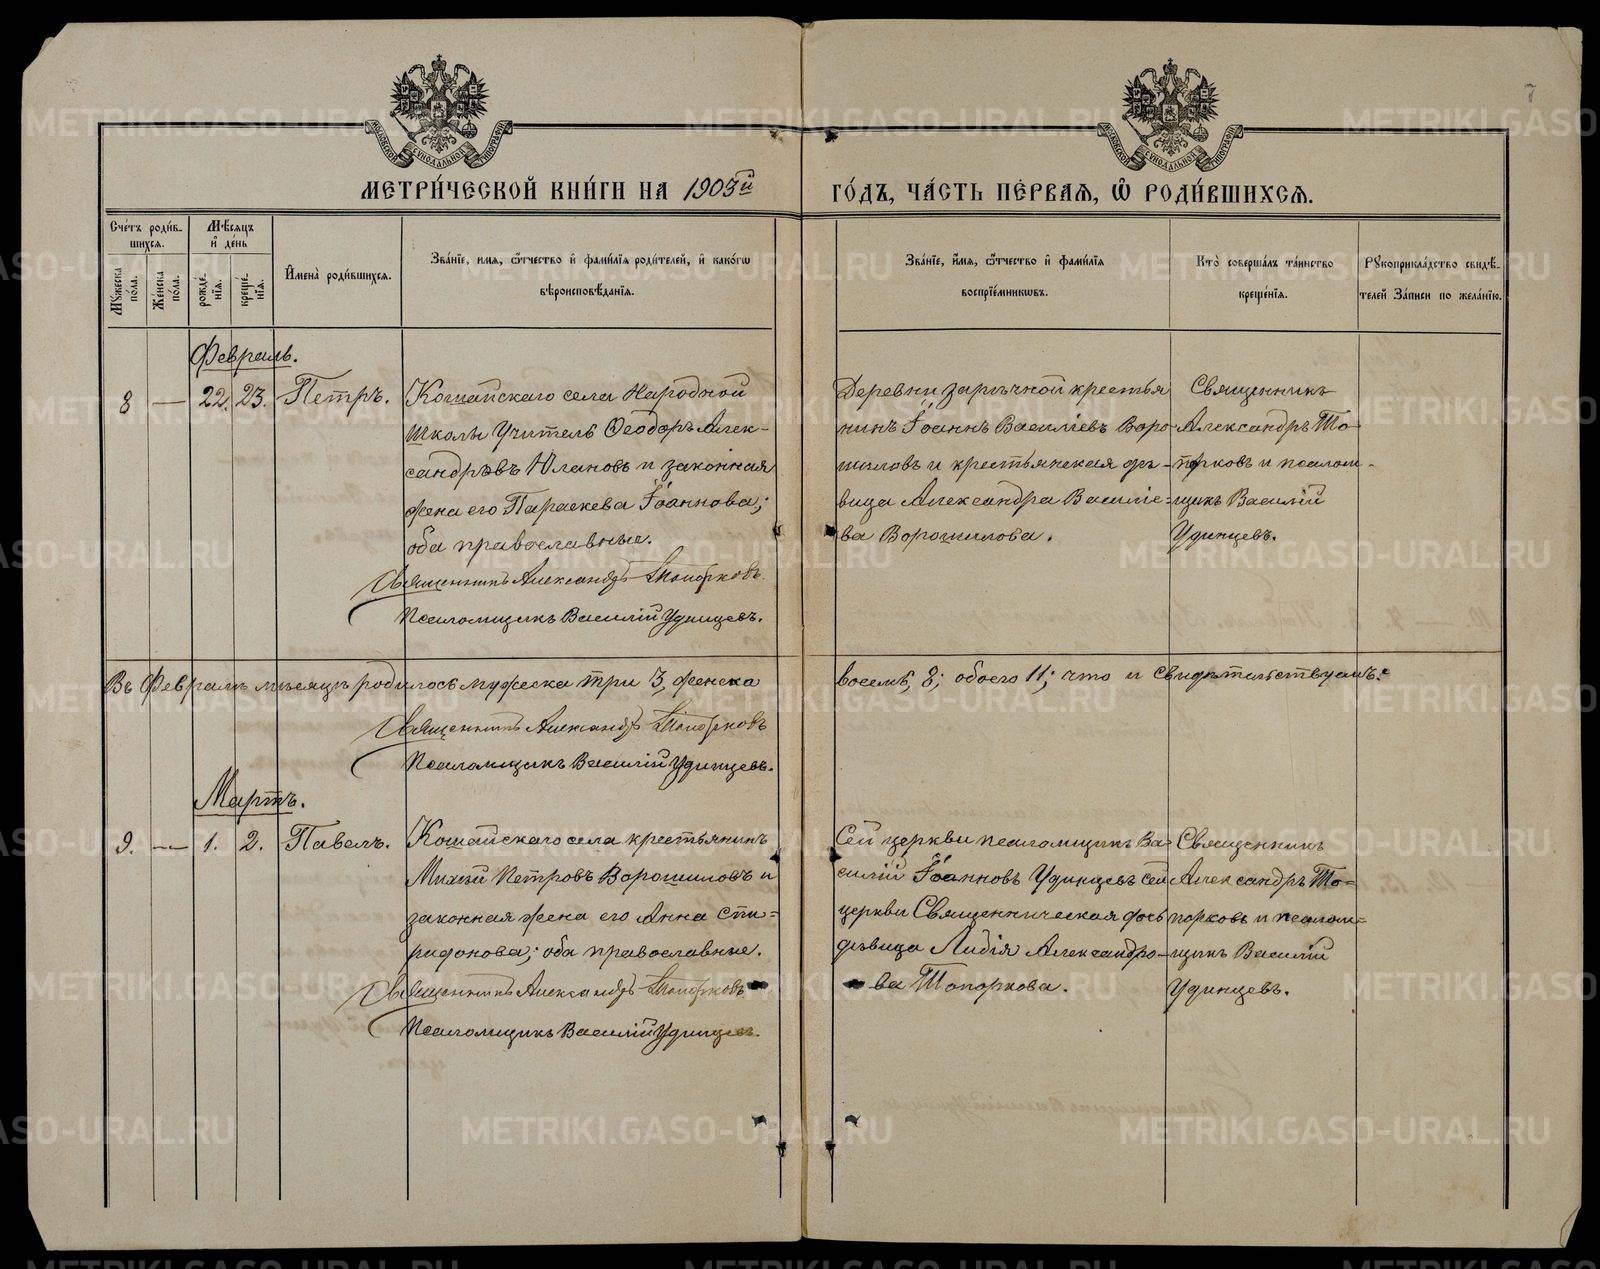 7
МОСКОВСКОЙ СѴНОДАЛЬНОЙ ТИПОГРАФІИ
МОСКОВСКОЙ СѴНОДАЛЬНОЙ ТИПОГРАФІИ
МЕТРИ́ЧЕСКОЙ КНИ́ГИ НА 1903й ГО́ДЪ, ЧА́СТЬ ПЕ́РВАѦ, Ѡ РОДИ́ВШИХСѦ.
Сче́тъ роди́в-
шихсѧ.
Мꙋ́жеска по́ла.
Же́нска по́ла.
Мѣ́сѧцъ и҆ де́нь
рожде́-нїѧ.
креще́-нїѧ.
И҆мена̀ роди́вшихсѧ.
Зва́нїе, и҆мѧ, ѻ҆́тчество и҆ фами́лїѧ роди́телей, и҆ како́гѡ
вѣроисповѣ́данїѧ.
Зва́нїе, и҆́мѧ, ѻ҆́тчество и҆ фами́лїѧ
воспрїе́мникѡвъ.
Кто̀ соверша́лъ та́инство
креще́нїѧ.
Рꙋкоприкла́дство свидѣ́-
телей за́писи по жела́нїю.
Февраль.
8 — 22. 23. Петръ.
Кошайскаго села Народной
школы Учитель Ѳеодоръ Алек-
сандровъ Юлановъ и законная
жена его Параскева Іоаннова;
оба православные.
Священникъ Александръ Топорковъ.
Псаломщикъ Василій Удинцевъ.
Деревни Заречной крестья
нинъ Іоаннъ Василіевъ Воро-
шиловъ и крестьянская дѣ-
вица Александра Василіе-
ва Ворошилова.
Священникъ
Александръ То-
порковъ и псалом-
щикъ Василій
Удинцевъ.
Въ Февралѣ мѣсяцѣ родилось мужеска три 3, женска восемь, 8; обоего 11; что и свидѣтельствуемъ:
Священникъ Александръ Топорковъ
Псаломщикъ Василій Удинцевъ.
Мартъ.
9. — 1. 2. Павелъ.
Кошайскаго села крестьянинъ
Михей Петровъ Ворошиловъ и
законная жена его Анна Спи-
ридонова; оба православные.
Священникъ Александръ Топорковъ
Псаломщикъ Василій Удинцевъ
Сей церкви псаломщикъ Ва-
силій Іоанновъ Удинцевъ сей
церкви Священническая дочь
дѣвица Лидія Александро-
ва Топоркова.
Священникъ
Александръ То-
порковъ и псалом-
щикъ Василій
Удинцевъ.
METRIKI.GASO-URAL.RU